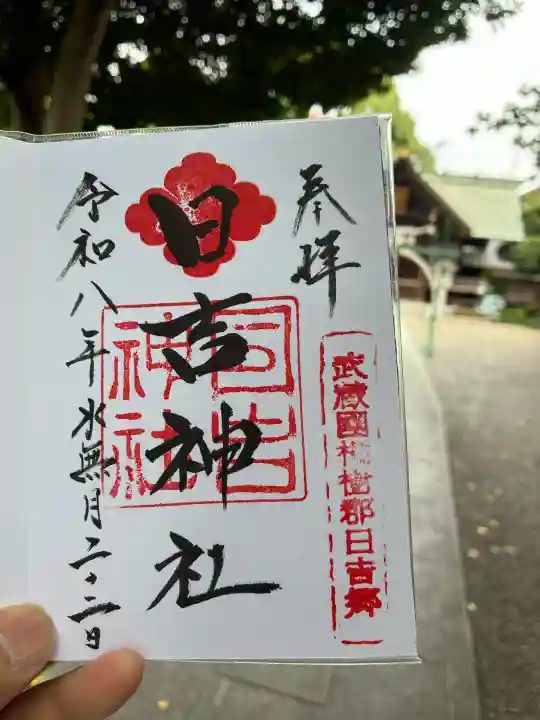 奉拝
武蔵國橘樹郡日吉郷
日吉神社
日吉神社
令和八年水無月二十二日